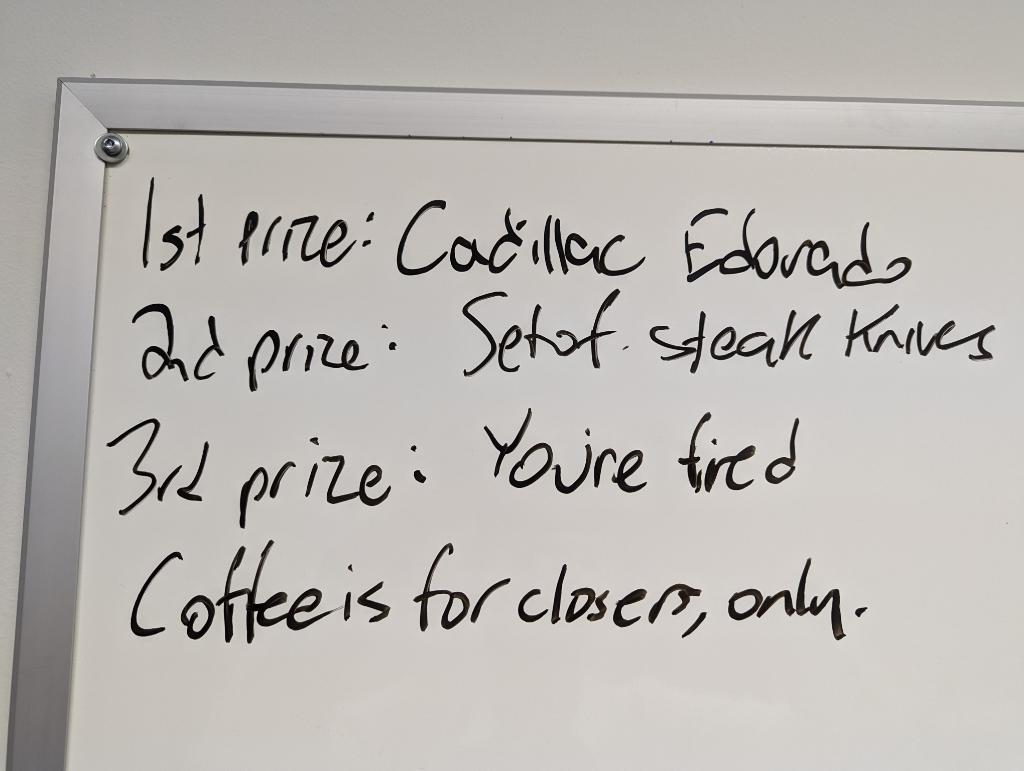 1st prize: Cadillac Edorado
2nd prize: Set of steak Knives
3rd prize: You're fired
Coffee is for closers, only.